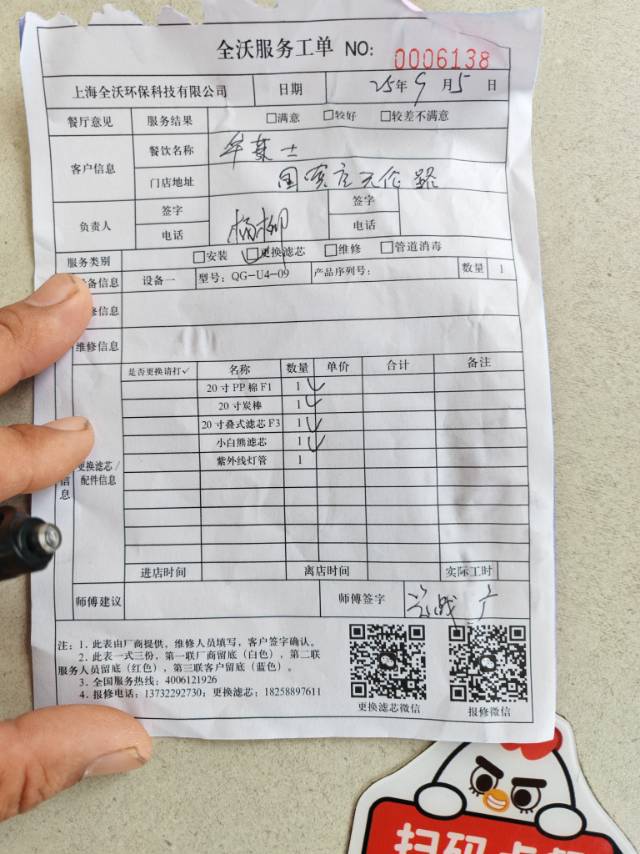 全沃服务工单 NO: 0006138
上海全沃环保科技有限公司 日期 25年9月5日
餐厅意见 服务结果 □满意 □较好 □较差不满意
客户信息 餐饮名称 华莱士
门店地址 国宾庄天伦路
负责人 签字 杨柳 签字
电话 电话
服务类别 □安装 □更换滤芯 □维修 □管道消毒
备信息 设备一 型号: QG-U4-09 产品序列号: 数量 1
修信息
维修信息
是否更换请打✓ 名称 数量 单价 合计 备注
20寸PP棉F1 1 ✓
20寸炭棒 1 ✓
20寸叠式滤芯F3 1 ✓
小白熊滤芯 1 ✓
紫外线灯管 1
更换滤芯/
配件信息
信息
进店时间 离店时间 实际工时
师傅建议 师傅签字
注: 1. 此表由厂商提供, 维修人员填写, 客户签字确认。
2. 此表一式三份, 第一联厂商留底（白色）, 第二联
服务人员留底（红色）, 第三联客户留底（蓝色）。
3. 全国服务热线: 4006121926
4. 报修电话: 13732292730; 更换滤芯: 18258897611
更换滤芯微信 报修微信
扫码点